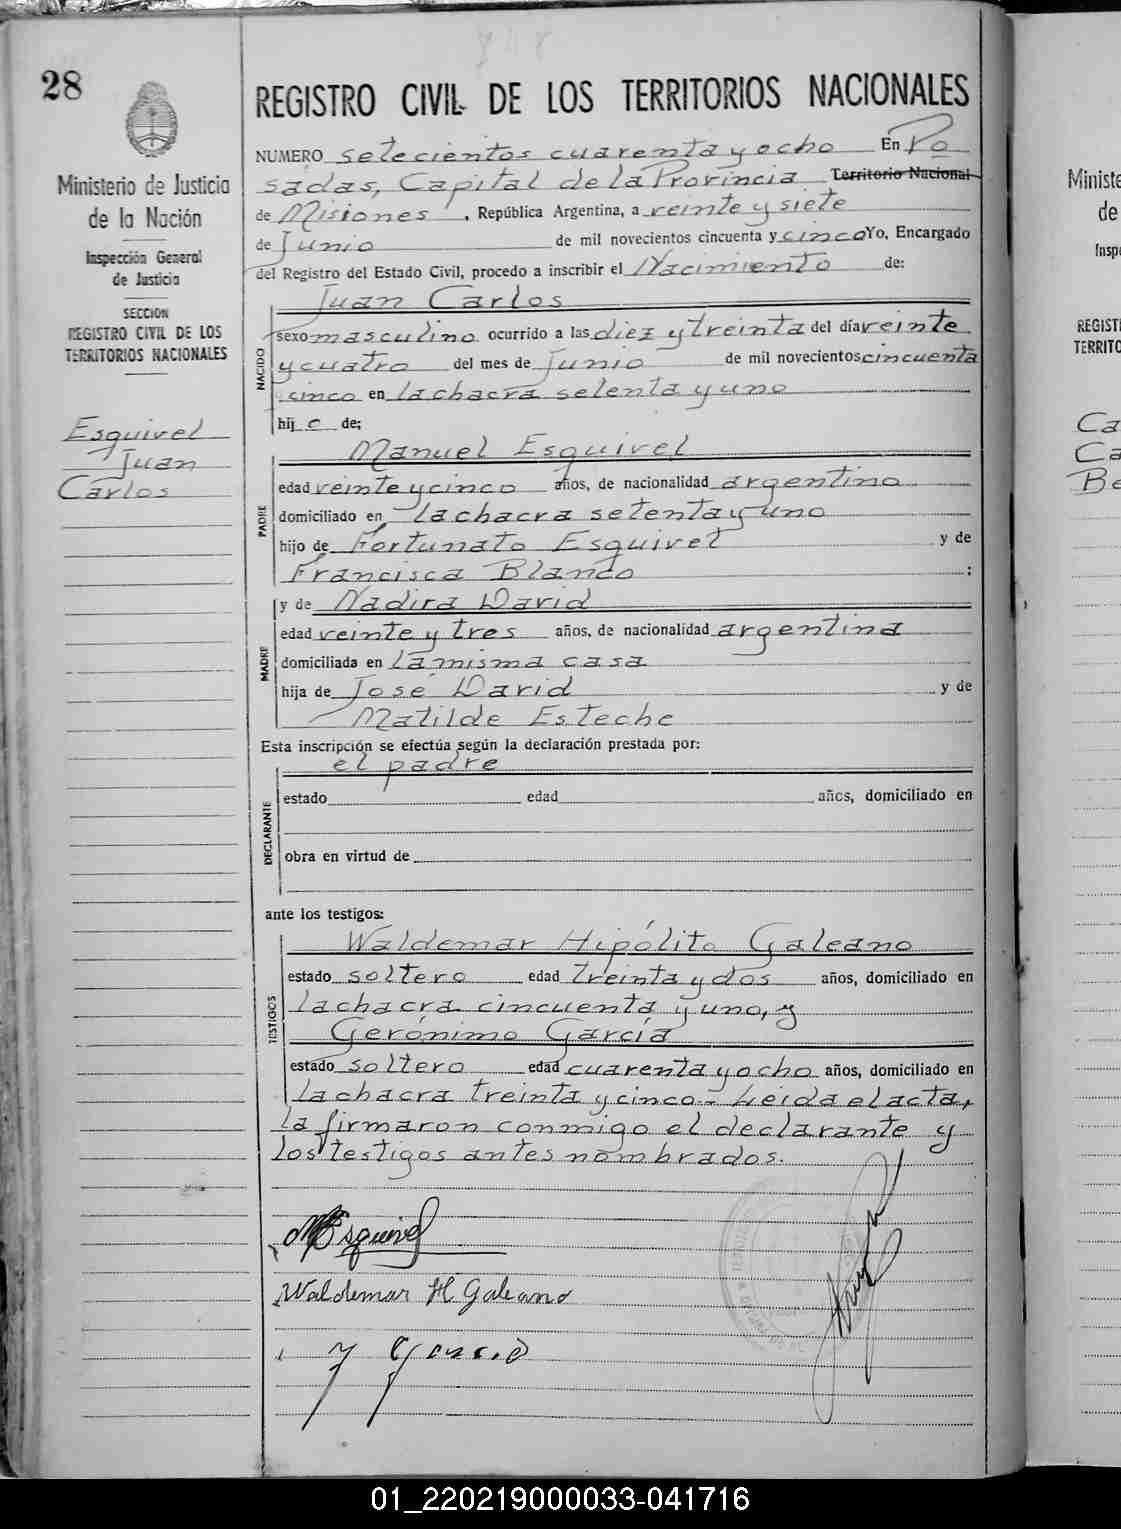 28
Ministerio de Justicia
de la Nación
Inspección General
de Justicia
SECCION
REGISTRO CIVIL DE LOS
TERRITORIOS NACIONALES
Esquivel
Juan
Carlos
REGISTRO CIVIL DE LOS TERRITORIOS NACIONALES
NUMERO setecientos cuarenta y ocho En Po
sadas, Capital de la Provincia Territorio Nacional
de Misiones, República Argentina, a veinte y siete
de Junio de mil novecientos cincuenta y cinco Yo, Encargado
del Registro del Estado Civil, procedo a inscribir el Nacimiento de:
Juan Carlos
NACIDO
sexo masculino ocurrido a las diez y treinta del día veinte
y cuatro del mes de Junio de mil novecientos cincuenta
cinco en la chacra setenta y uno
hijo de;
Manuel Esquivel
PADRE
edad veinte y cinco años, de nacionalidad argentino
domiciliado en la chacra setenta y uno
hijo de Fortunato Esquivel y de
Francisca Blanco ;
MADRE
y de Nadira David
edad veinte y tres años, de nacionalidad argentina
domiciliada en la misma casa
hija de José David y de
Matilde Esteche
Esta inscripción se efectúa según la declaración prestada por:
el padre
DECLARANTE
estado edad años, domiciliado en
obra en virtud de
ante los testigos:
Waldemar Hipólito Galeano
TESTIGOS
estado soltero edad treinta y dos años, domiciliado en
la chacra cincuenta y uno, y
Gerónimo García
estado soltero edad cuarenta y ocho años, domiciliado en
la chacra treinta y cinco.- Leida el acta,
la firmaron conmigo el declarante y
los testigos antes nombrados.
M Esquivel
Waldemar H Galeano
Ministe
de
Insp
REGIST
TERRITO
Ca
Ca
Be
01_220219000033-041716